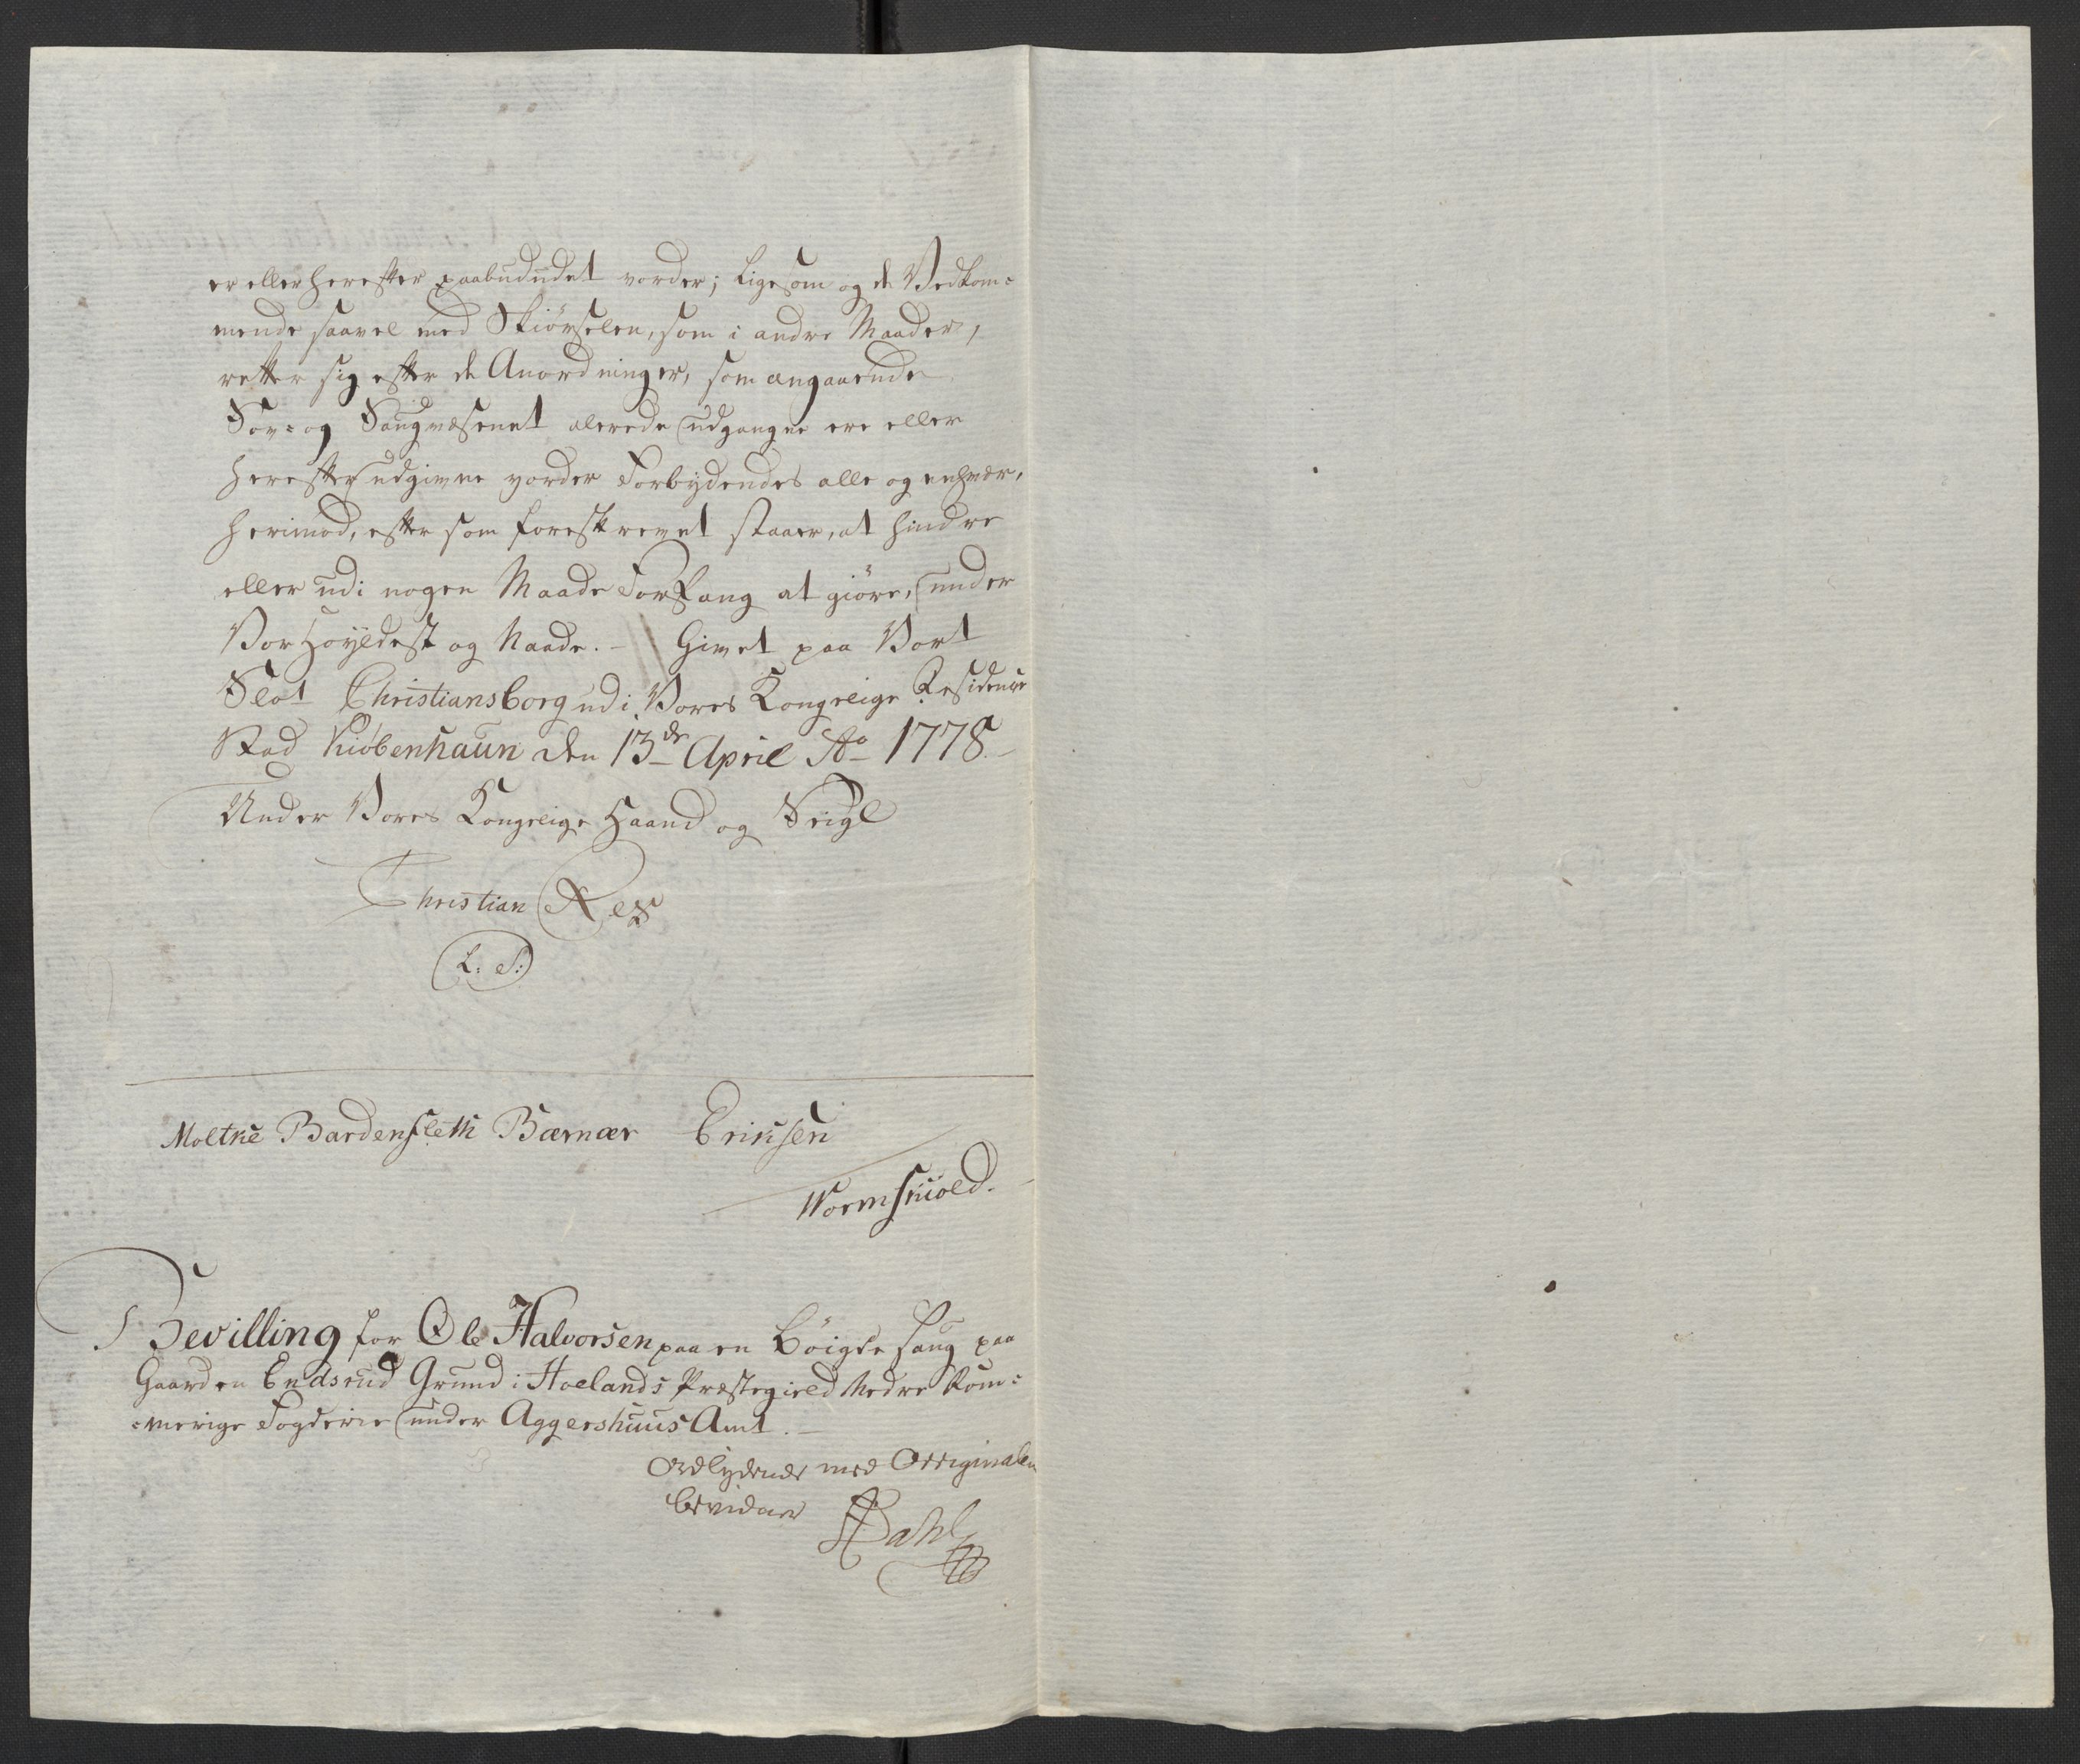 er eller herefter paabududet vorder; ligesom og de Vedkom=
mende saavel med Skiørselen, som i andre Maader,
retter sig efter de Anordninger, som angaaende
Sov= og Saugvæsenet alerede udgangne ere eller
herefter udgivne vorder Forbydendes alle og enhver,
herimod, efter som foreskrevet staaer, at hindre
eller udi nogen Maade Forfang at giöre, under
Vor Hoyldest og Naade. – Givet paa Vort
Slot Christiansborg udi Vores Kongelige Residence
Stad Kiöbenhaun den 13de April Ao 1778. –
Under Vores Kongelige Haand og Seigl
Christian Rex
L. S:
Moltke Bardenfleth Bærnær Eriksen
Wormskiold.
Bevilling for Ole Halvorsen paa en Böigde saug paa
Gaarden Endsrud Grund i Hoelands Præstegield Nedre Rom=
=merige Fogderie under Aggershuus Amt. –
Ordlydende med Orriginalen
bevidner Dahl